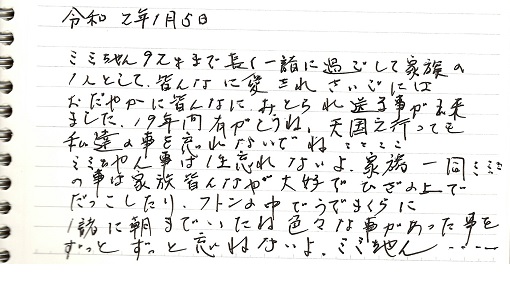 令和7年1月5日
ミミちゃん97才まで長く一諸に過ごして家族の
1人として、皆んなに愛されさいごには
おだやかに皆んなに、みとられ送る事が出来
ました。19年間有がとうね、天国え行っても
私達の事を忘れないでね……
ミミちゃん事は1生忘れないよ。家族一同ミミ
の事は家族皆んなが大好でひざの上で
だっこしたり、フトンの中でうでまくらに
1諸に朝までいたね色々な事があった事を
ずっとずっと忘れないよ、ミミちゃん……